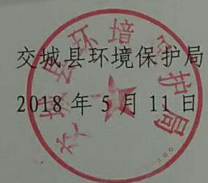 交城县环境保护局
2018年5月11日
交城县环境护局